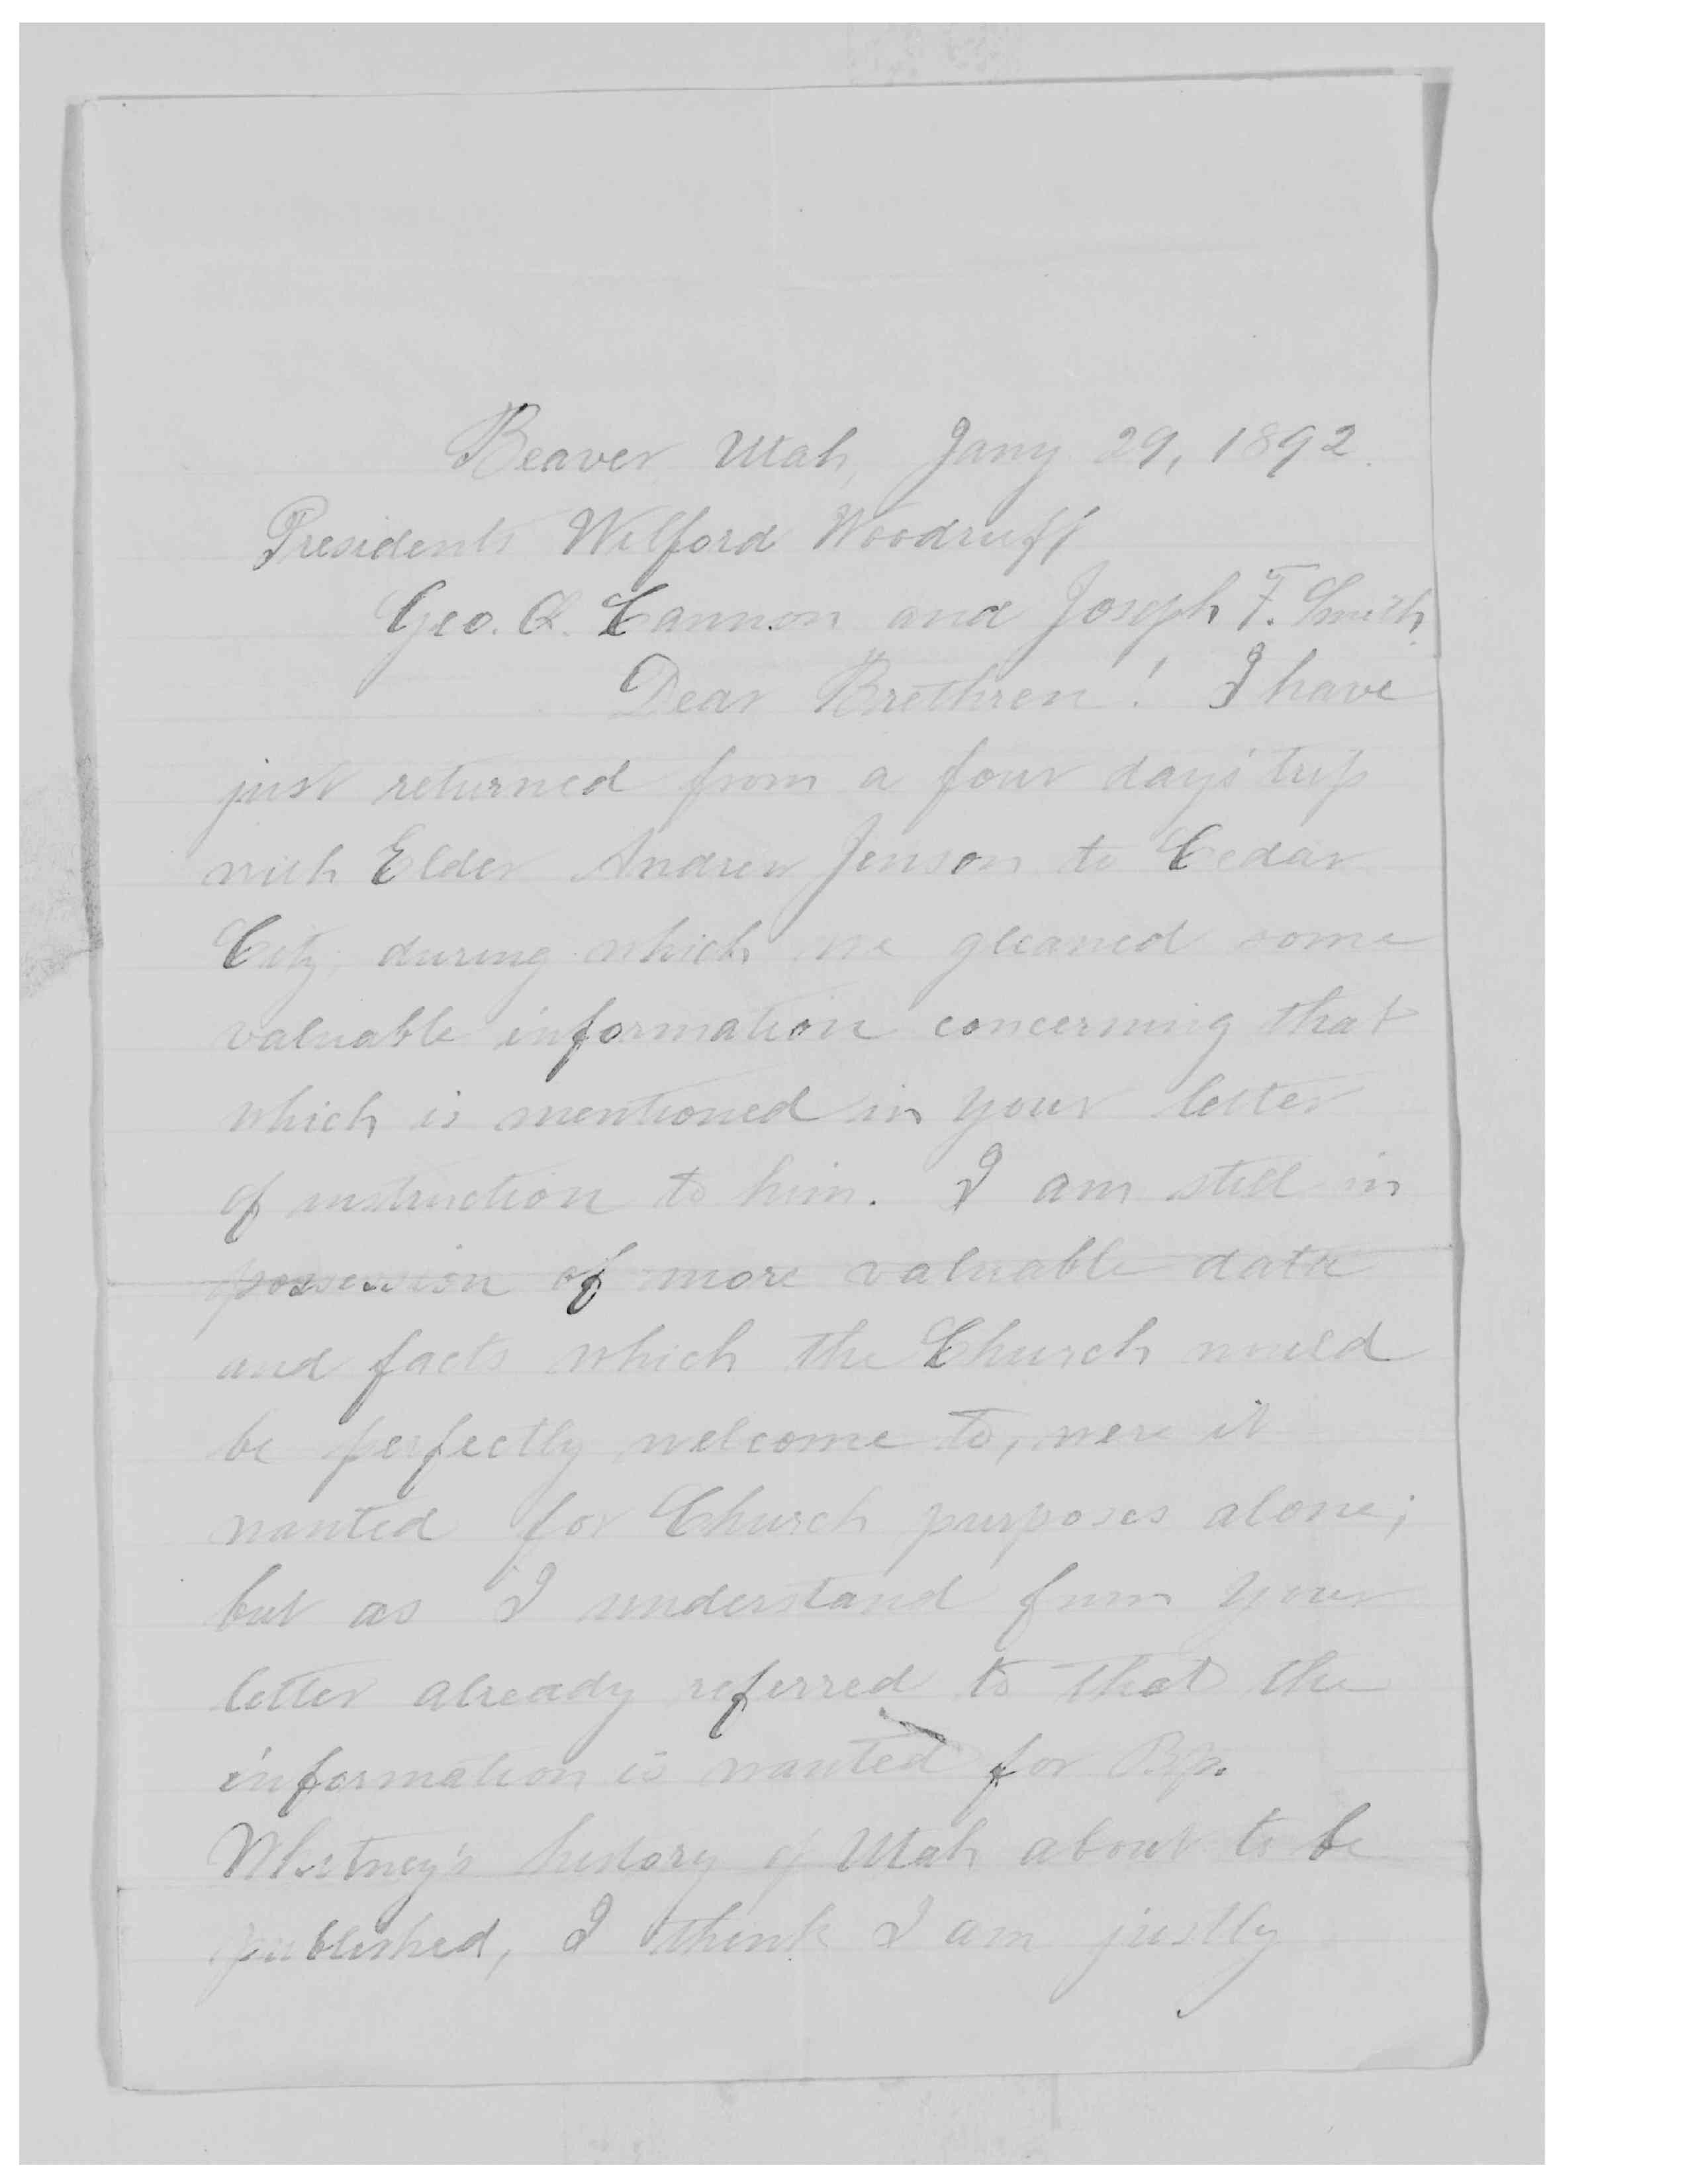 Beaver Utah, Jany 29, 1892.
Presidents Wilford Woodruff
Geo. Q. Cannon and Joseph F. Smith.
Dear Brethren! I have
just returned from a four days' trip
with Elder Andrew Jenson to Cedar
City, during which we gleaned some
valuable information concerning that
which is mentioned in your letter
of instruction to him. I am still in
possession of more valuable data
and facts which the Church would
be perfectly welcome to, were it
wanted for Church purposes alone;
but as I understand from your
letter already referred to that the
information is wanted for Bp.
Whitney's history of Utah about to be
published, I think I am justly